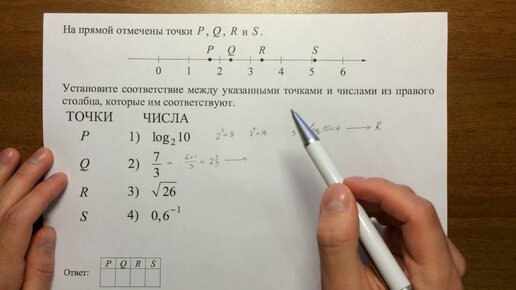 На прямой отмечены точки P, Q, R и S.
P Q R S
0 1 2 3 4 5 6
Установите соответствие между указанными точками и числами из правого
столбца, которые им соответствуют.
ТОЧКИ ЧИСЛА
P 1) log₂10 2³=8 2⁴=16 3 log₂10<4 → R
Q 2) 7/3 = (6+1)/3 = 2 1/3 →
R 3) √26
S 4) 0,6⁻¹
P Q R S
Ответ: